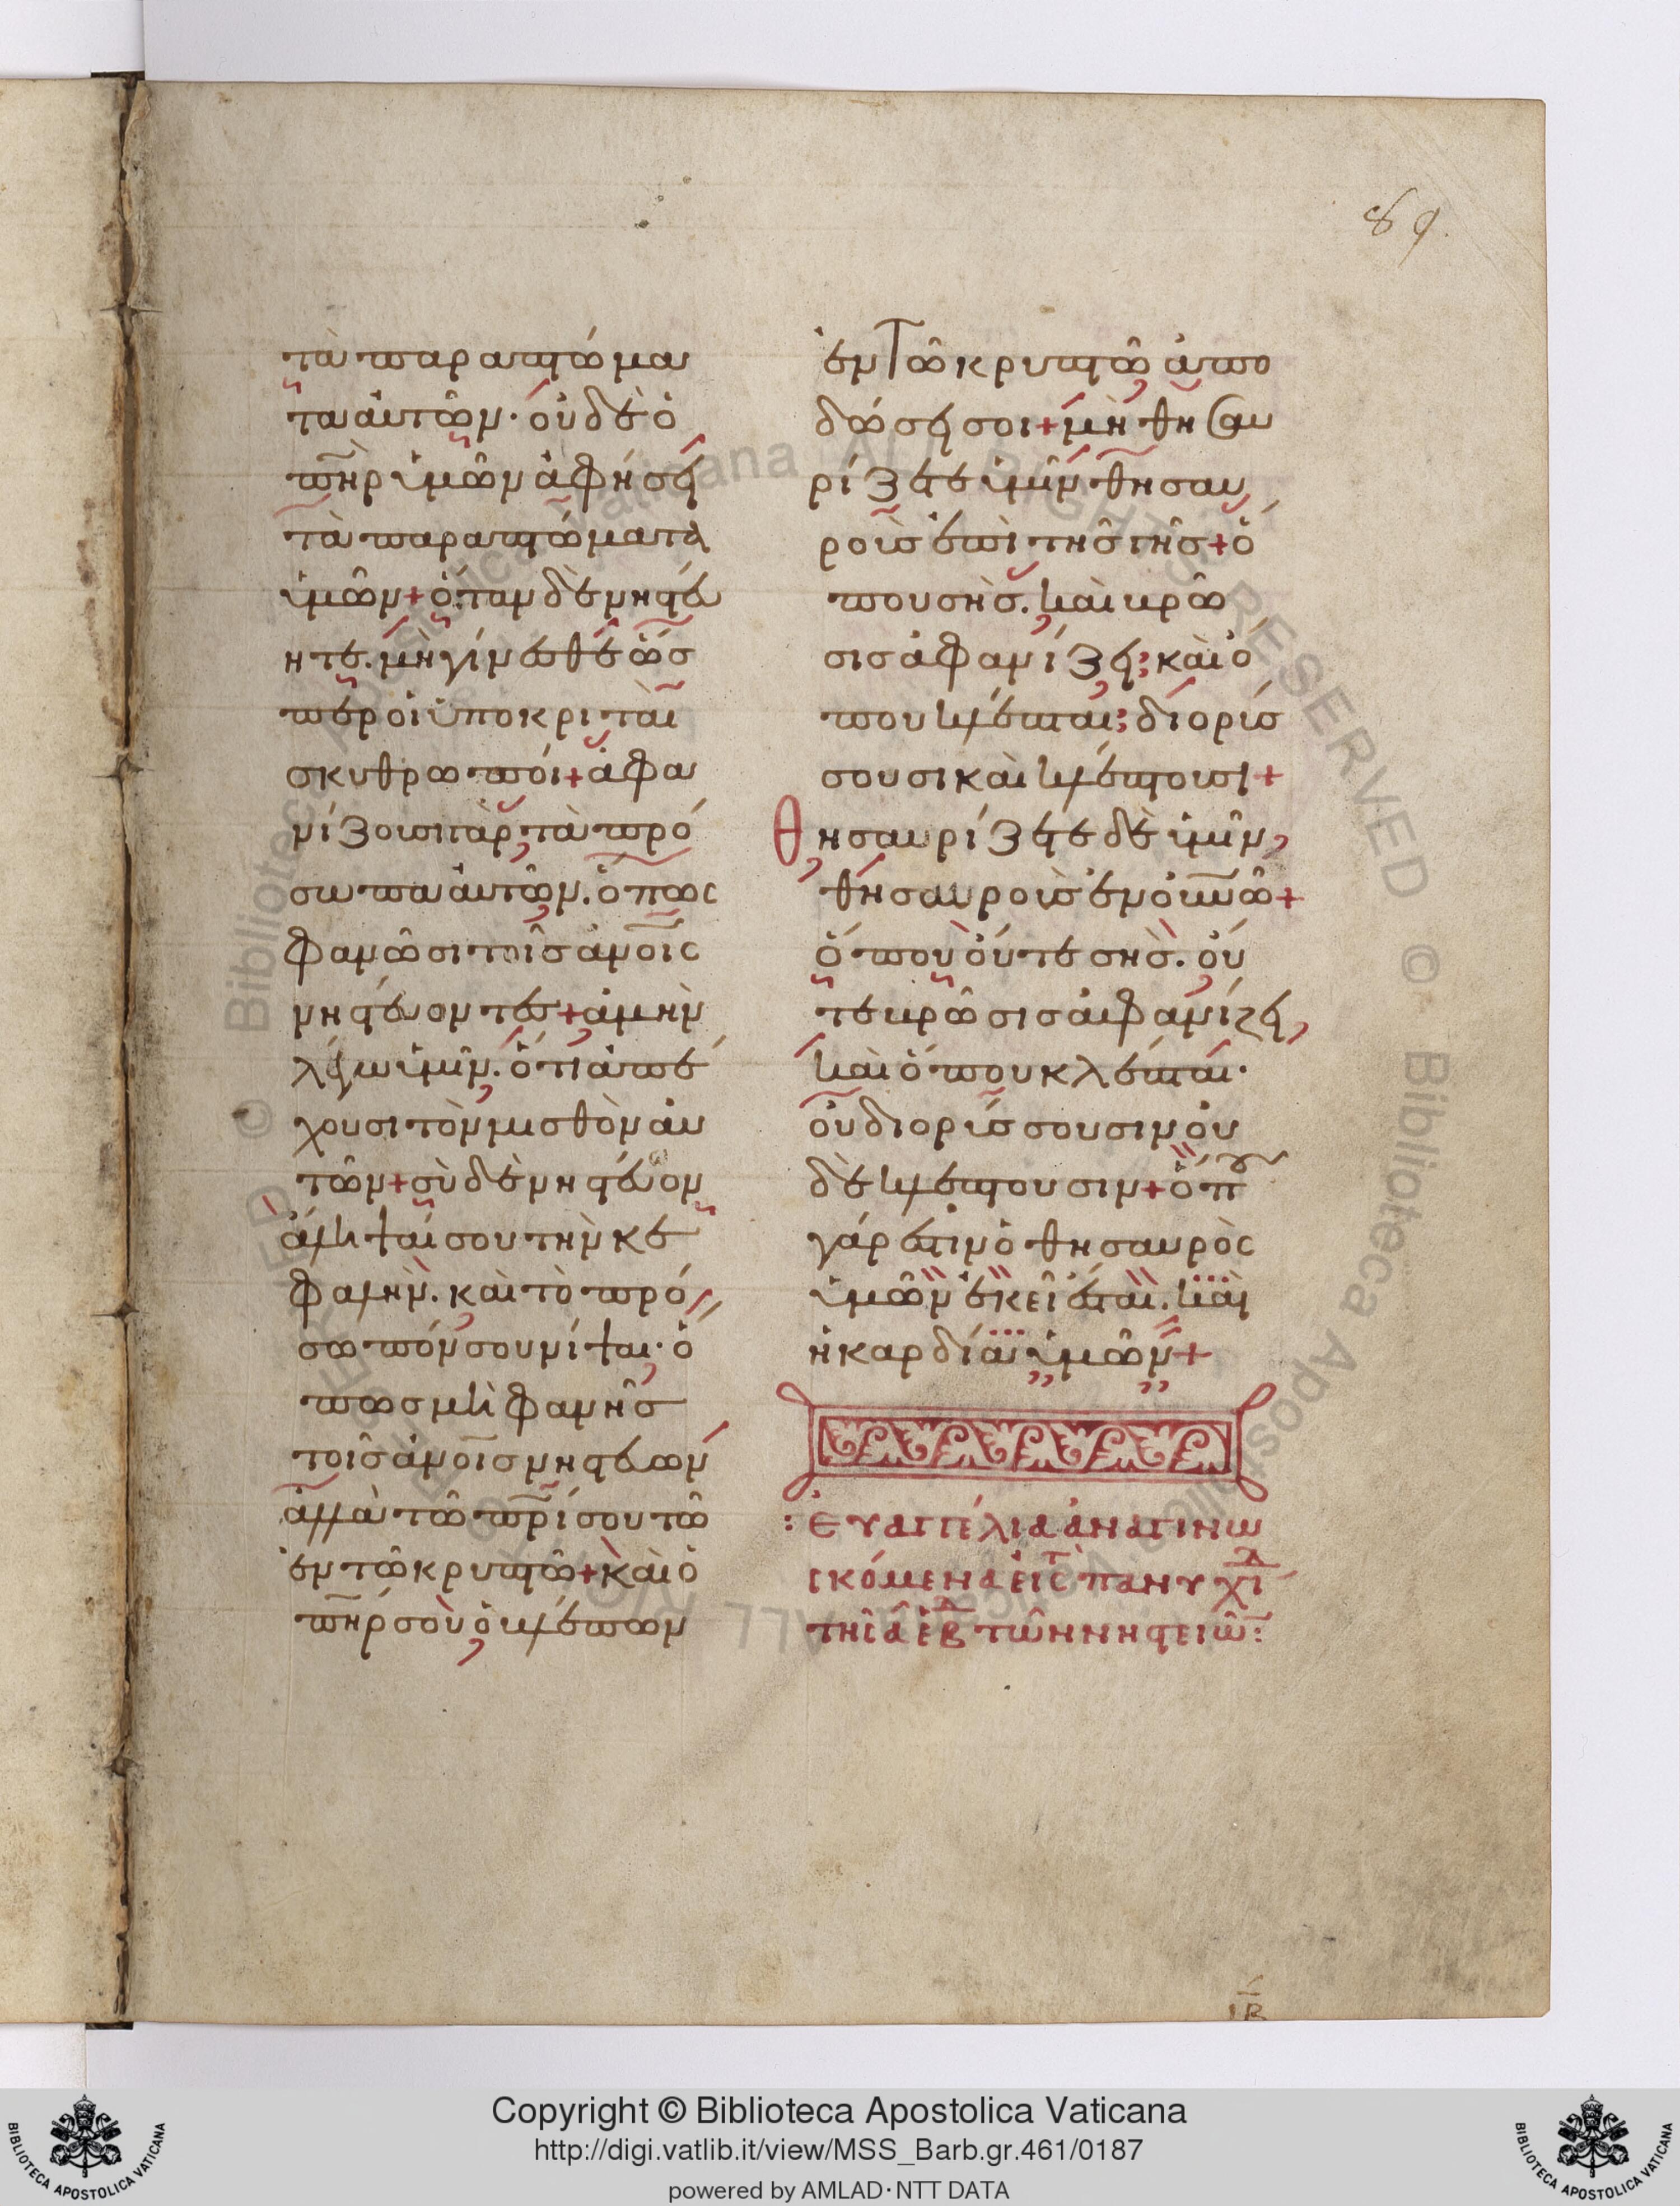 89.
τὰ παραπτώμα
τα αὐτῶν· οὐδὲ ὁ
πη̅ρ ὑμῶν ἀφήσει
τὰ παραπτώματα
ὑμῶν + ὅταν δὲ νηστεύ
ητε. μὴ γίνεσθε ὥσ
περ οἱ ὑποκριταὶ
σκυθρωποί + ἀφα
νίζουσι γὰρ τὰ πρό
σωπα αὐτῶν. ὅπως
φανῶσι τοῖς ἀν̅οις
νηστεύοντες + ἀμὴν
λέγω ὑμῖν. ὅτι ἀπέ
χουσι τὸν μισθὸν αὐ
τῶν + σὺ δὲ νηστεύον
ἄλειψαί σου τὴν κε
φαλήν. καὶ τὸ πρό
σωπόν σου νίψαι· ὅ
πως μὴ φανῆς
τοῖς ἀν̅οις νηστεύων
ἀλλὰ τῶ πρ̅ί σου τῶ
ἐν τῶ κρυπτῶ + καὶ ὁ
πη̅ρ σοὺ ὁ βλέπων
ἐν τῶ κρυπτῶ ἀπο
δώσει σοι + μὴ θησαυ
ρίζετε ὑμῖν θησαυ
ροὺς ἐπὶ τῆς γῆς + ὅ
που σὴς. καὶ βρῶ
σις ἀφανίζει; καὶ ὅ
που κλέπται; διορύσ
σουσι καὶ κλέπτουσι +
Θησαυρίζετε δὲ ὑμῖν,
θησαυροὺς ἐν οὐ̅νῶ +
ὅπου οὔτε σὴς. οὔ
τε βρῶσις ἀφανίζει,
καὶ ὅπου κλέπται·
οὐ διορύσσουσιν οὐ
δὲ κλέπτουσιν + ὅπου
γάρ ἐστιν ὁ θησαυρὸς
ὑμῶν ἐκεῖ ἔσται. καὶ
ἡ καρδία ὑμῶν +
: ΕΥΑΓΓΈΛΙΑ ἈΝΑΓΙΝΩ
ΣΚΌΜΕΝΑ ΕἸΣ Τ ΠΑΝΥΧΙ
ΤΗ͂Σ Α ΕΒ ΤΩ͂Ν ΝΗϚΕΙΩ͂:
ΙΒ
Copyright © Biblioteca Apostolica Vaticana
http://digi.vatlib.it/view/MSS_Barb.gr.461/0187
powered by AMLAD·NTT DATA
BIBLIOTECA APOSTOLICA VATICANA
BIBLIOTECA APOSTOLICA VATICANA